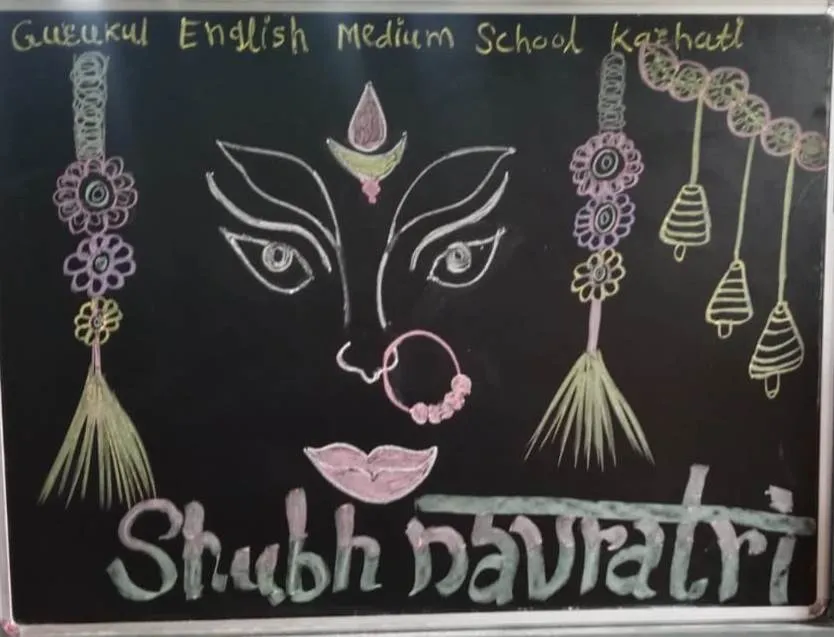 Gurukul English Medium School Karhati
Shubh navratri